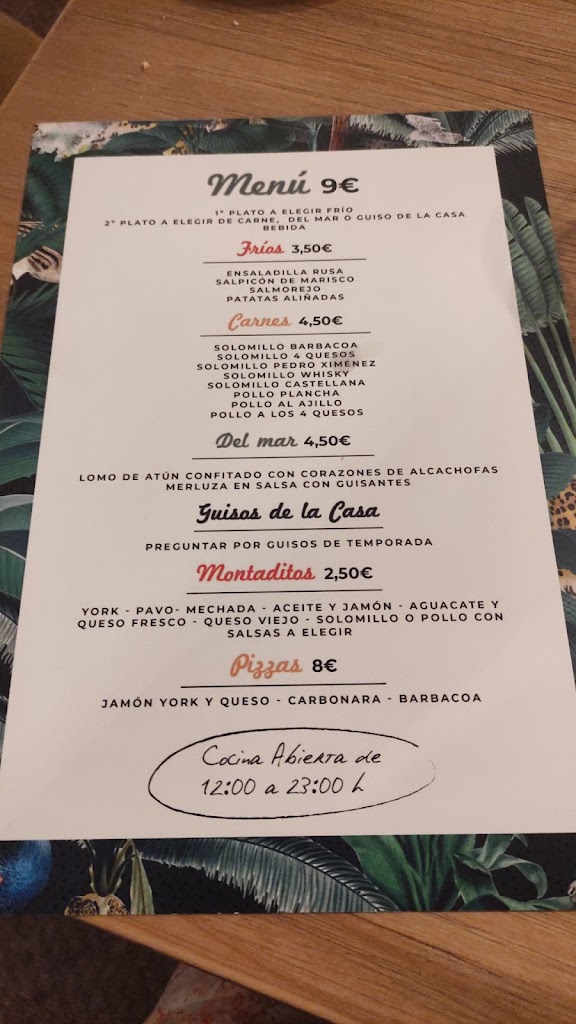 Menú 9€
1º PLATO A ELEGIR FRÍO
2º PLATO A ELEGIR DE CARNE, DEL MAR O GUISO DE LA CASA
BEBIDA
Fríos 3,50€
ENSALADILLA RUSA
SALPICÓN DE MARISCO
SALMOREJO
PATATAS ALIÑADAS
Carnes 4,50€
SOLOMILLO BARBACOA
SOLOMILLO 4 QUESOS
SOLOMILLO PEDRO XIMÉNEZ
SOLOMILLO WHISKY
SOLOMILLO CASTELLANA
POLLO PLANCHA
POLLO AL AJILLO
POLLO A LOS 4 QUESOS
Del mar 4,50€
LOMO DE ATÚN CONFITADO CON CORAZONES DE ALCACHOFAS
MERLUZA EN SALSA CON GUISANTES
Guisos de la Casa
PREGUNTAR POR GUISOS DE TEMPORADA
Montaditos 2,50€
YORK - PAVO- MECHADA - ACEITE Y JAMÓN - AGUACATE Y
QUESO FRESCO - QUESO VIEJO - SOLOMILLO O POLLO CON
SALSAS A ELEGIR
Pizzas 8€
JAMÓN YORK Y QUESO - CARBONARA - BARBACOA
Cocina Abierta de
12:00 a 23:00 h